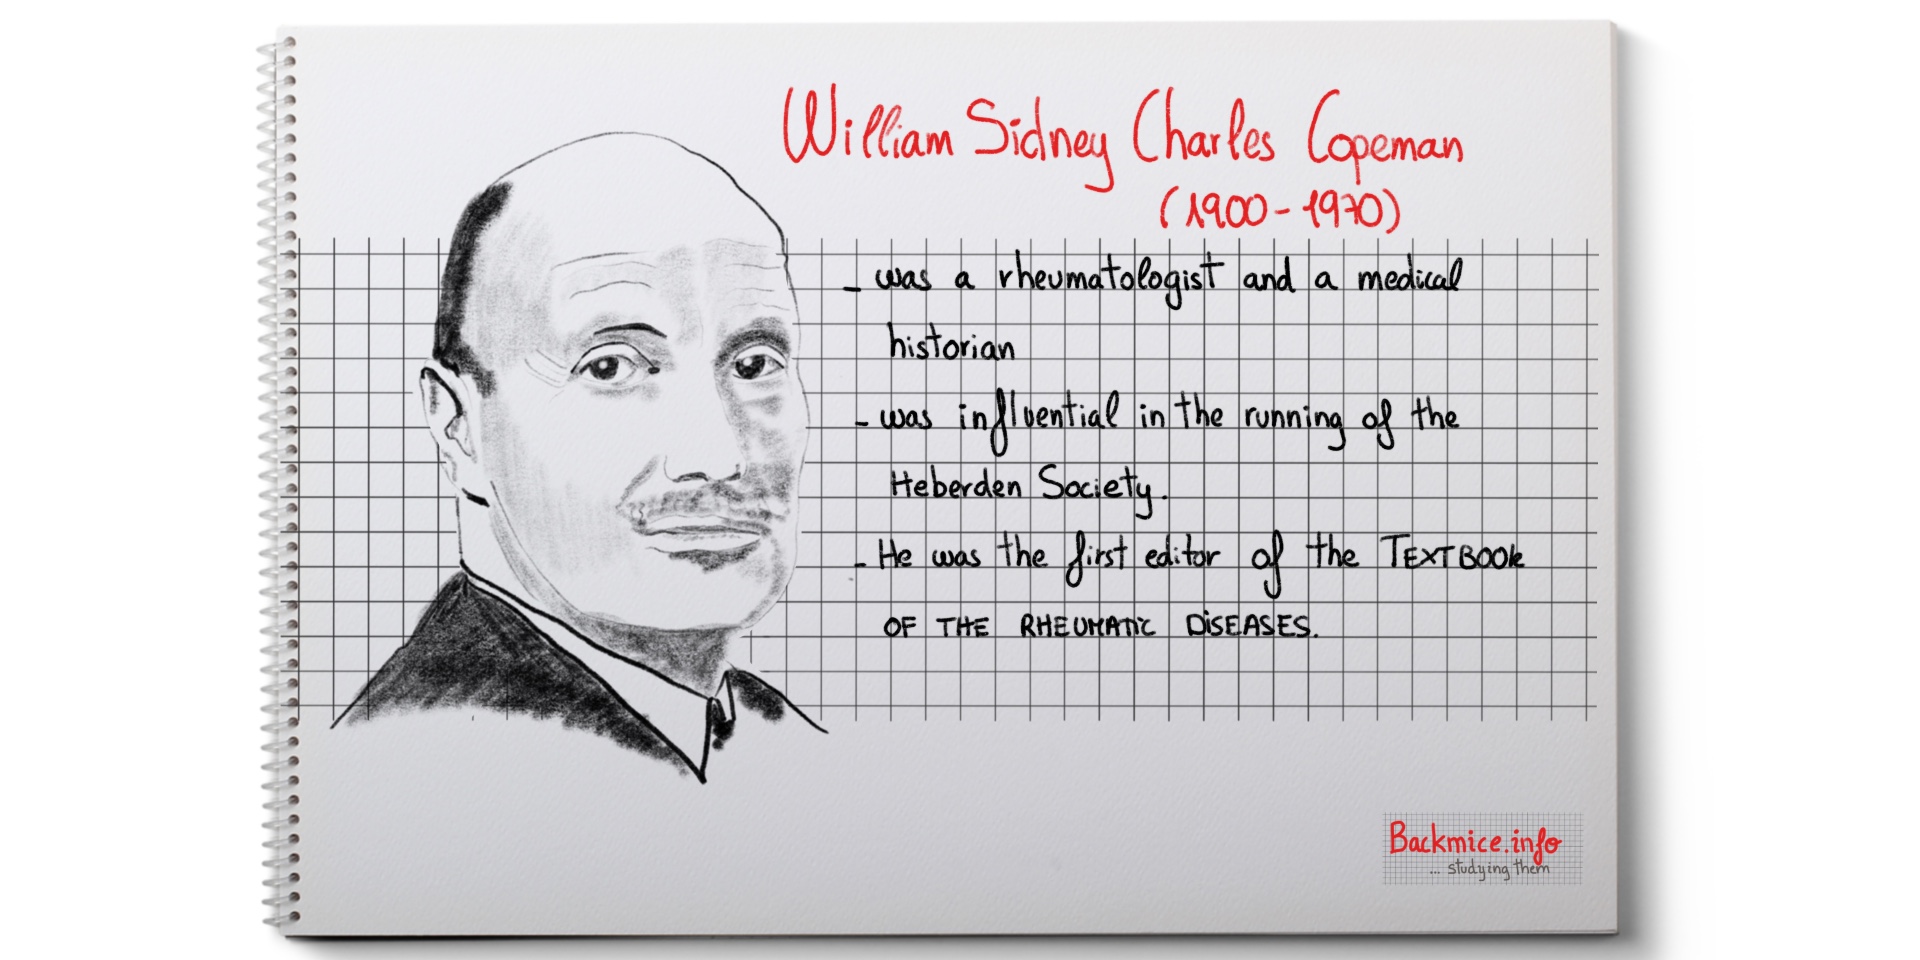 William Sidney Charles Copeman
(1900-1970)
- was a rheumatologist and a medical
historian
- was influential in the running of the
Heberden Society.
- He was the first editor of the TEXTBOOk
OF THE RHEUMATIC DiSEASES.
Backmice.info
... studying them